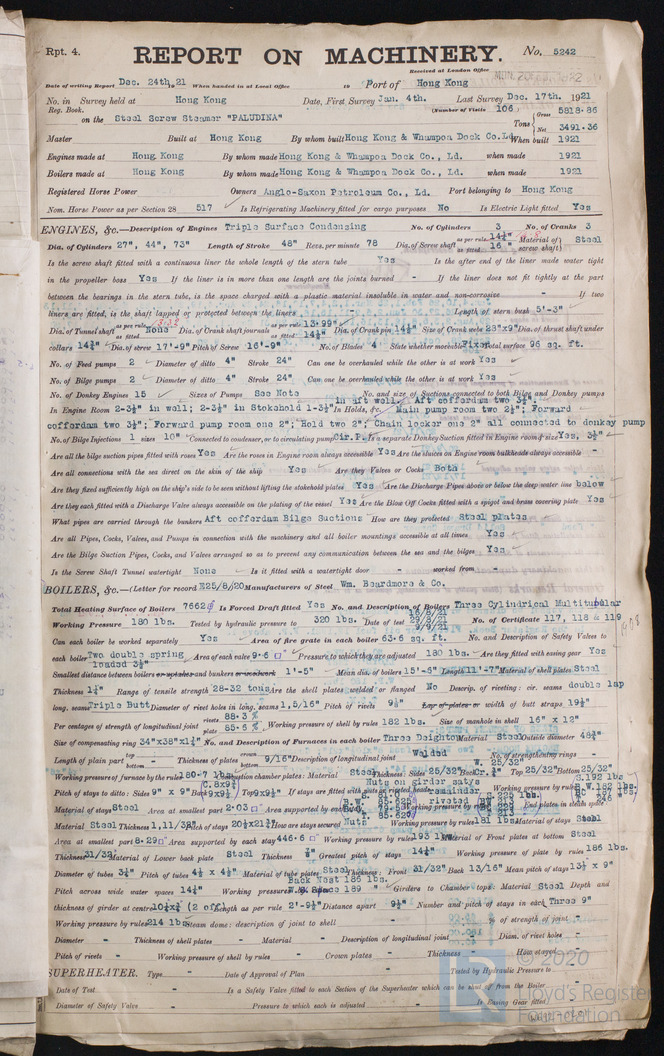 Rpt. 4. REPORT ON MACHINERY. No. 5242
Received at London Office
Date of writing Report Dec. 24th, 1921 When handed in at Local Office 19 Port of Hong Kong
No. in Survey held at Hong Kong Date, First Survey Jan. 4th. Last Survey Dec. 17th. 1921
Reg. Book. (Number of Visits 106
on the Steel Screw Steamer "PALUDINA" Tons Gross 5818.86 Net 3491.36
Master Built at Hong Kong By whom built Hong Kong & Whampoa Dock Co. Ld. When built 1921
Engines made at Hong Kong By whom made Hong Kong & Whampoa Dock Co., Ld. when made 1921
Boilers made at Hong Kong By whom made Hong Kong & Whampoa Dock Co., Ld. when made 1921
Registered Horse Power Owners Anglo-Saxon Petroleum Co., Ld. Port belonging to Hong Kong
Nom. Horse Power as per Section 28 517 Is Refrigerating Machinery fitted for cargo purposes No Is Electric Light fitted Yes
ENGINES, &c.—Description of Engines Triple Surface Condensing No. of Cylinders 3 No. of Cranks 3
Dia. of Cylinders 27", 44", 73" Length of Stroke 48" Revs. per minute 78 Dia. of Screw shaft as per rule 14¼" as fitted 16" Material of screw shaft Steel
Is the screw shaft fitted with a continuous liner the whole length of the stern tube Yes Is the after end of the liner made water tight
in the propeller boss Yes If the liner is in more than one length are the joints burned - If the liner does not fit tightly at the part
between the bearings in the stern tube, is the space charged with a plastic material insoluble in water and non-corrosive - If two
liners are fitted, is the shaft lapped or protected between the liners Length of stern bush 5'-3"
Dia. of Tunnel shaft as per rule as fitted None Dia. of Crank shaft journals as per rule 13.99" as fitted 14¼" Dia. of Crank pin 14¼" Size of Crank webs 28"x9" Dia. of thrust shaft under
collars 14¼" Dia. of screw 17'-9" Pitch of Screw 16'-9" No. of Blades 4 State whether moveable Fixed Total surface 96 sq. ft.
No. of Feed pumps 2 Diameter of ditto 4" Stroke 24" Can one be overhauled while the other is at work Yes
No. of Bilge pumps 2 Diameter of ditto 4" Stroke 24" Can one be overhauled while the other is at work Yes
No. of Donkey Engines 15 Sizes of Pumps See Note No. and size of Suctions connected to both Bilge and Donkey pumps
in aft well, Aft cofferdam two 3½";
In Engine Room 2-3½" in well; 2-3½" in Stokehold 1-3½" In Holds, &c. Main pump room two 2½"; Forward
cofferdam two 3½"; Forward pump room one 2"; Hold two 2"; Chain locker one 2" all connected to donkey pump
No. of Bilge Injections 1 sizes 10" Connected to condenser, or to circulating pump Cir.P. Is a separate Donkey Suction fitted in Engine room & size Yes, 3½"
Are all the bilge suction pipes fitted with roses Yes Are the roses in Engine room always accessible Yes Are the sluices on Engine room bulkheads always accessible -
Are all connections with the sea direct on the skin of the ship Yes Are they Valves or Cocks Both
Are they fixed sufficiently high on the ship's side to be seen without lifting the stokehold plates Yes Are the Discharge Pipes above or below the deep water line below
Are they each fitted with a Discharge Valve always accessible on the plating of the vessel Yes Are the Blow Off Cocks fitted with a spigot and brass covering plate Yes
What pipes are carried through the bunkers Aft cofferdam Bilge Suctions How are they protected Steel plates
Are all Pipes, Cocks, Valves, and Pumps in connection with the machinery and all boiler mountings accessible at all times Yes
Are the Bilge Suction Pipes, Cocks, and Valves arranged so as to prevent any communication between the sea and the bilges Yes
Is the Screw Shaft Tunnel watertight None Is it fitted with a watertight door - worked from -
BOILERS, &c.—(Letter for record E25/8/20 Manufacturers of Steel Wm. Beardmore & Co.
Total Heating Surface of Boilers 7662 Is Forced Draft fitted Yes No. and Description of Boilers Three Cylindrical Multitubular
Working Pressure 180 lbs. Tested by hydraulic pressure to 320 lbs. Date of test 16/8/21 29/8/21 9/9/21 No. of Certificate 117, 118 & 119
Can each boiler be worked separately Yes Area of fire grate in each boiler 63.6 sq. ft. No. and Description of Safety Valves to
each boiler Two double spring loaded 3½" Area of each valve 9.6 Pressure to which they are adjusted 180 lbs. Are they fitted with easing gear Yes
Smallest distance between boilers or uptakes and bunkers or woodwork 1'-5" Mean dia. of boilers 15'-6" Length 11'-7" Material of shell plates Steel
Thickness 1¼" Range of tensile strength 28-32 tons Are the shell plates welded or flanged No Descrip. of riveting: cir. seams double lap
long. seams Triple Butt Diameter of rivet holes in long. seams 1,5/16" Pitch of rivets 9¼" Lap of plates or width of butt straps 19½"
Per centages of strength of longitudinal joint rivets 88.3 % plate 85.6 % Working pressure of shell by rules 182 lbs. Size of manhole in shell 16" x 12"
Size of compensating ring 34"x38"x1¼" No. and Description of Furnaces in each boiler Three Deighton Material Steel Outside diameter 48¾"
Length of plain part top bottom Thickness of plates crown bottom 9/16" Description of longitudinal joint Welded No. of strengthening rings -
Working pressure of furnace by the rules 180.7 lbs. Combustion chamber plates: Material Steel Thickness: Sides 25/32" Back Top 25/32" Bottom 25/32"
Pitch of stays to ditto: Sides 9" x 9" Back 9x9¼ Top 9x9¼" If stays are fitted with nuts or riveted heads Nuts on girder stays remainder riveted Working pressure by rules S.192 lbs.
Material of stays Steel Area at smallest part 2.03 Area supported by each stay Working pressure by rules End plates in steam space
Material Steel Thickness 1,11/32" Pitch of stays 20½x21½" How are stays secured Nuts Working pressure by rules 181 lbs Material of stays Steel
Area at smallest part 8.29 Area supported by each stay 446.6 Working pressure by rules 193 lbs Material of Front plates at bottom Steel
Thickness 31/32" Material of Lower back plate Steel Thickness Greatest pitch of stays 14¼" Working pressure of plate by rules 186 lbs.
Diameter of tubes 3¼" Pitch of tubes 4½ x 4½" Material of tube plates Steel Thickness: Front 31/32" Back 13/16" Mean pitch of stays 13½ x 9"
Pitch across wide water spaces 14½" Working pressures Back Nest 186 lbs. 189 " Girders to Chamber tops: Material Steel Depth and
thickness of girder at centre (2 off) Length as per rule 2'-9½" Distance apart 9½" Number and pitch of stays in each Three 9"
Working pressure by rules 214 lbs Steam dome: description of joint to shell - % of strength of joint -
Diameter - Thickness of shell plates - Material - Description of longitudinal joint - Diam. of rivet holes -
Pitch of rivets - Working pressure of shell by rules - Crown plates - Thickness - How stayed -
SUPERHEATER. Type - Date of Approval of Plan - Tested by Hydraulic Pressure to -
Date of Test - Is a Safety Valve fitted to each Section of the Superheater which can be shut off from the Boiler -
Diameter of Safety Valve - Pressure to which each is adjusted - Is Easing Gear fitted -
© 2020
Lloyd's Register
Foundation